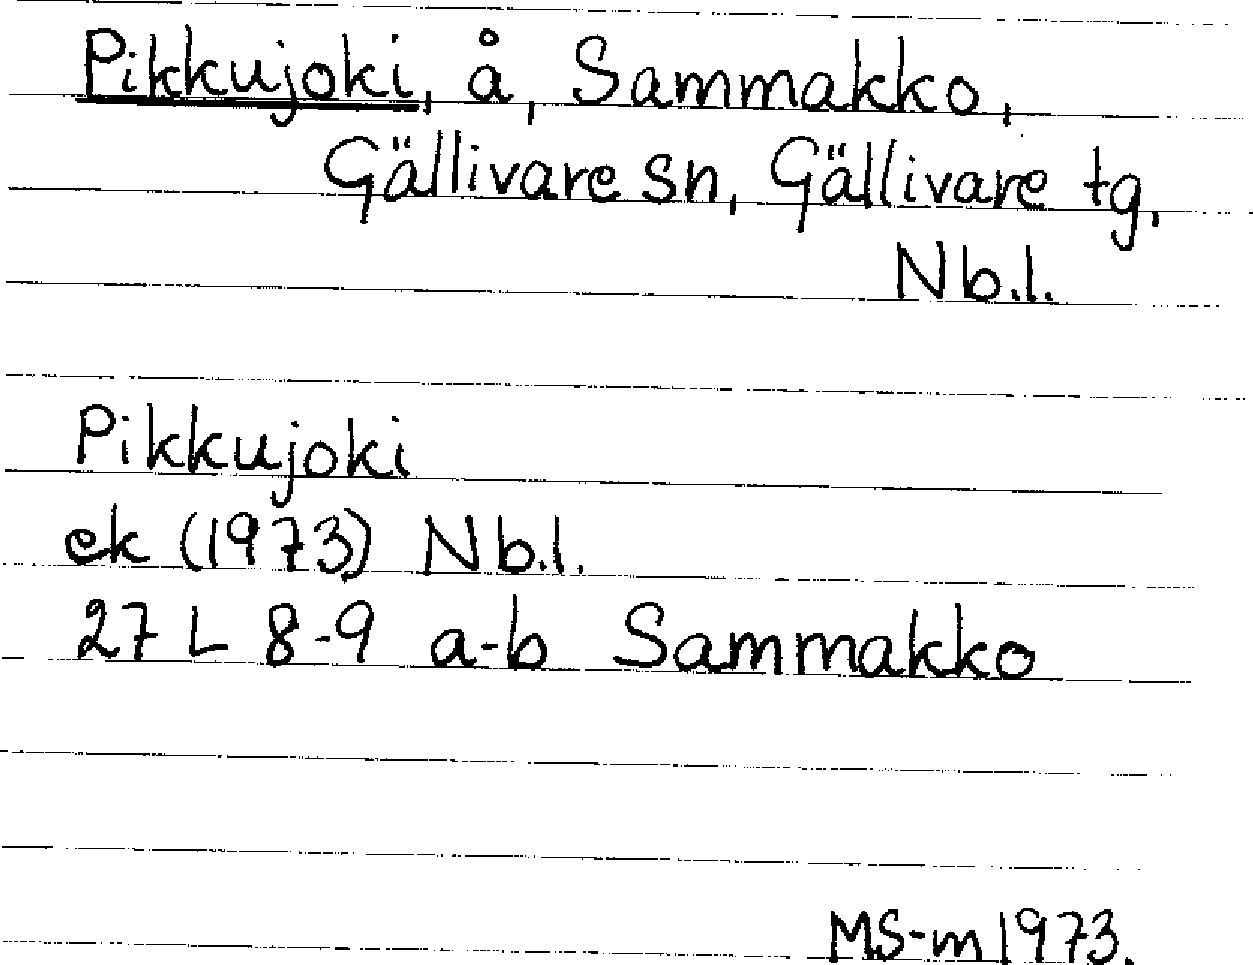 Pikkujoki, å, Sammakko,
Gällivare sn, Gällivare tg,
Nb.l.
Pikkujoki
ek (1973) Nb.l.
27 L 8-9 a-b Sammakko
MS-m 1973.